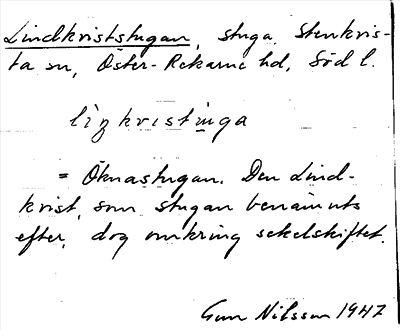 Lindkriststugan, stuga, Stenkvis-
ta sn, Öster-Rekarne hd, Södl.
= Öknastugan. Den Lind-
krist, som stugan benämnts
efter, dog omkring sekelskiftet.
Gun Nilsson 1947